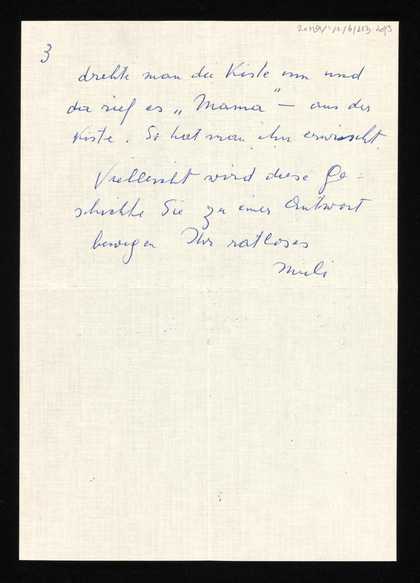 3
drehte man die Kiste um und
da rief es „Mama" – aus der
Kiste. So hat man ihn erwischt.
Vielleicht wird diese Ge-
schichte Sie zu einer Antwort
bewegen Ihr ratloses